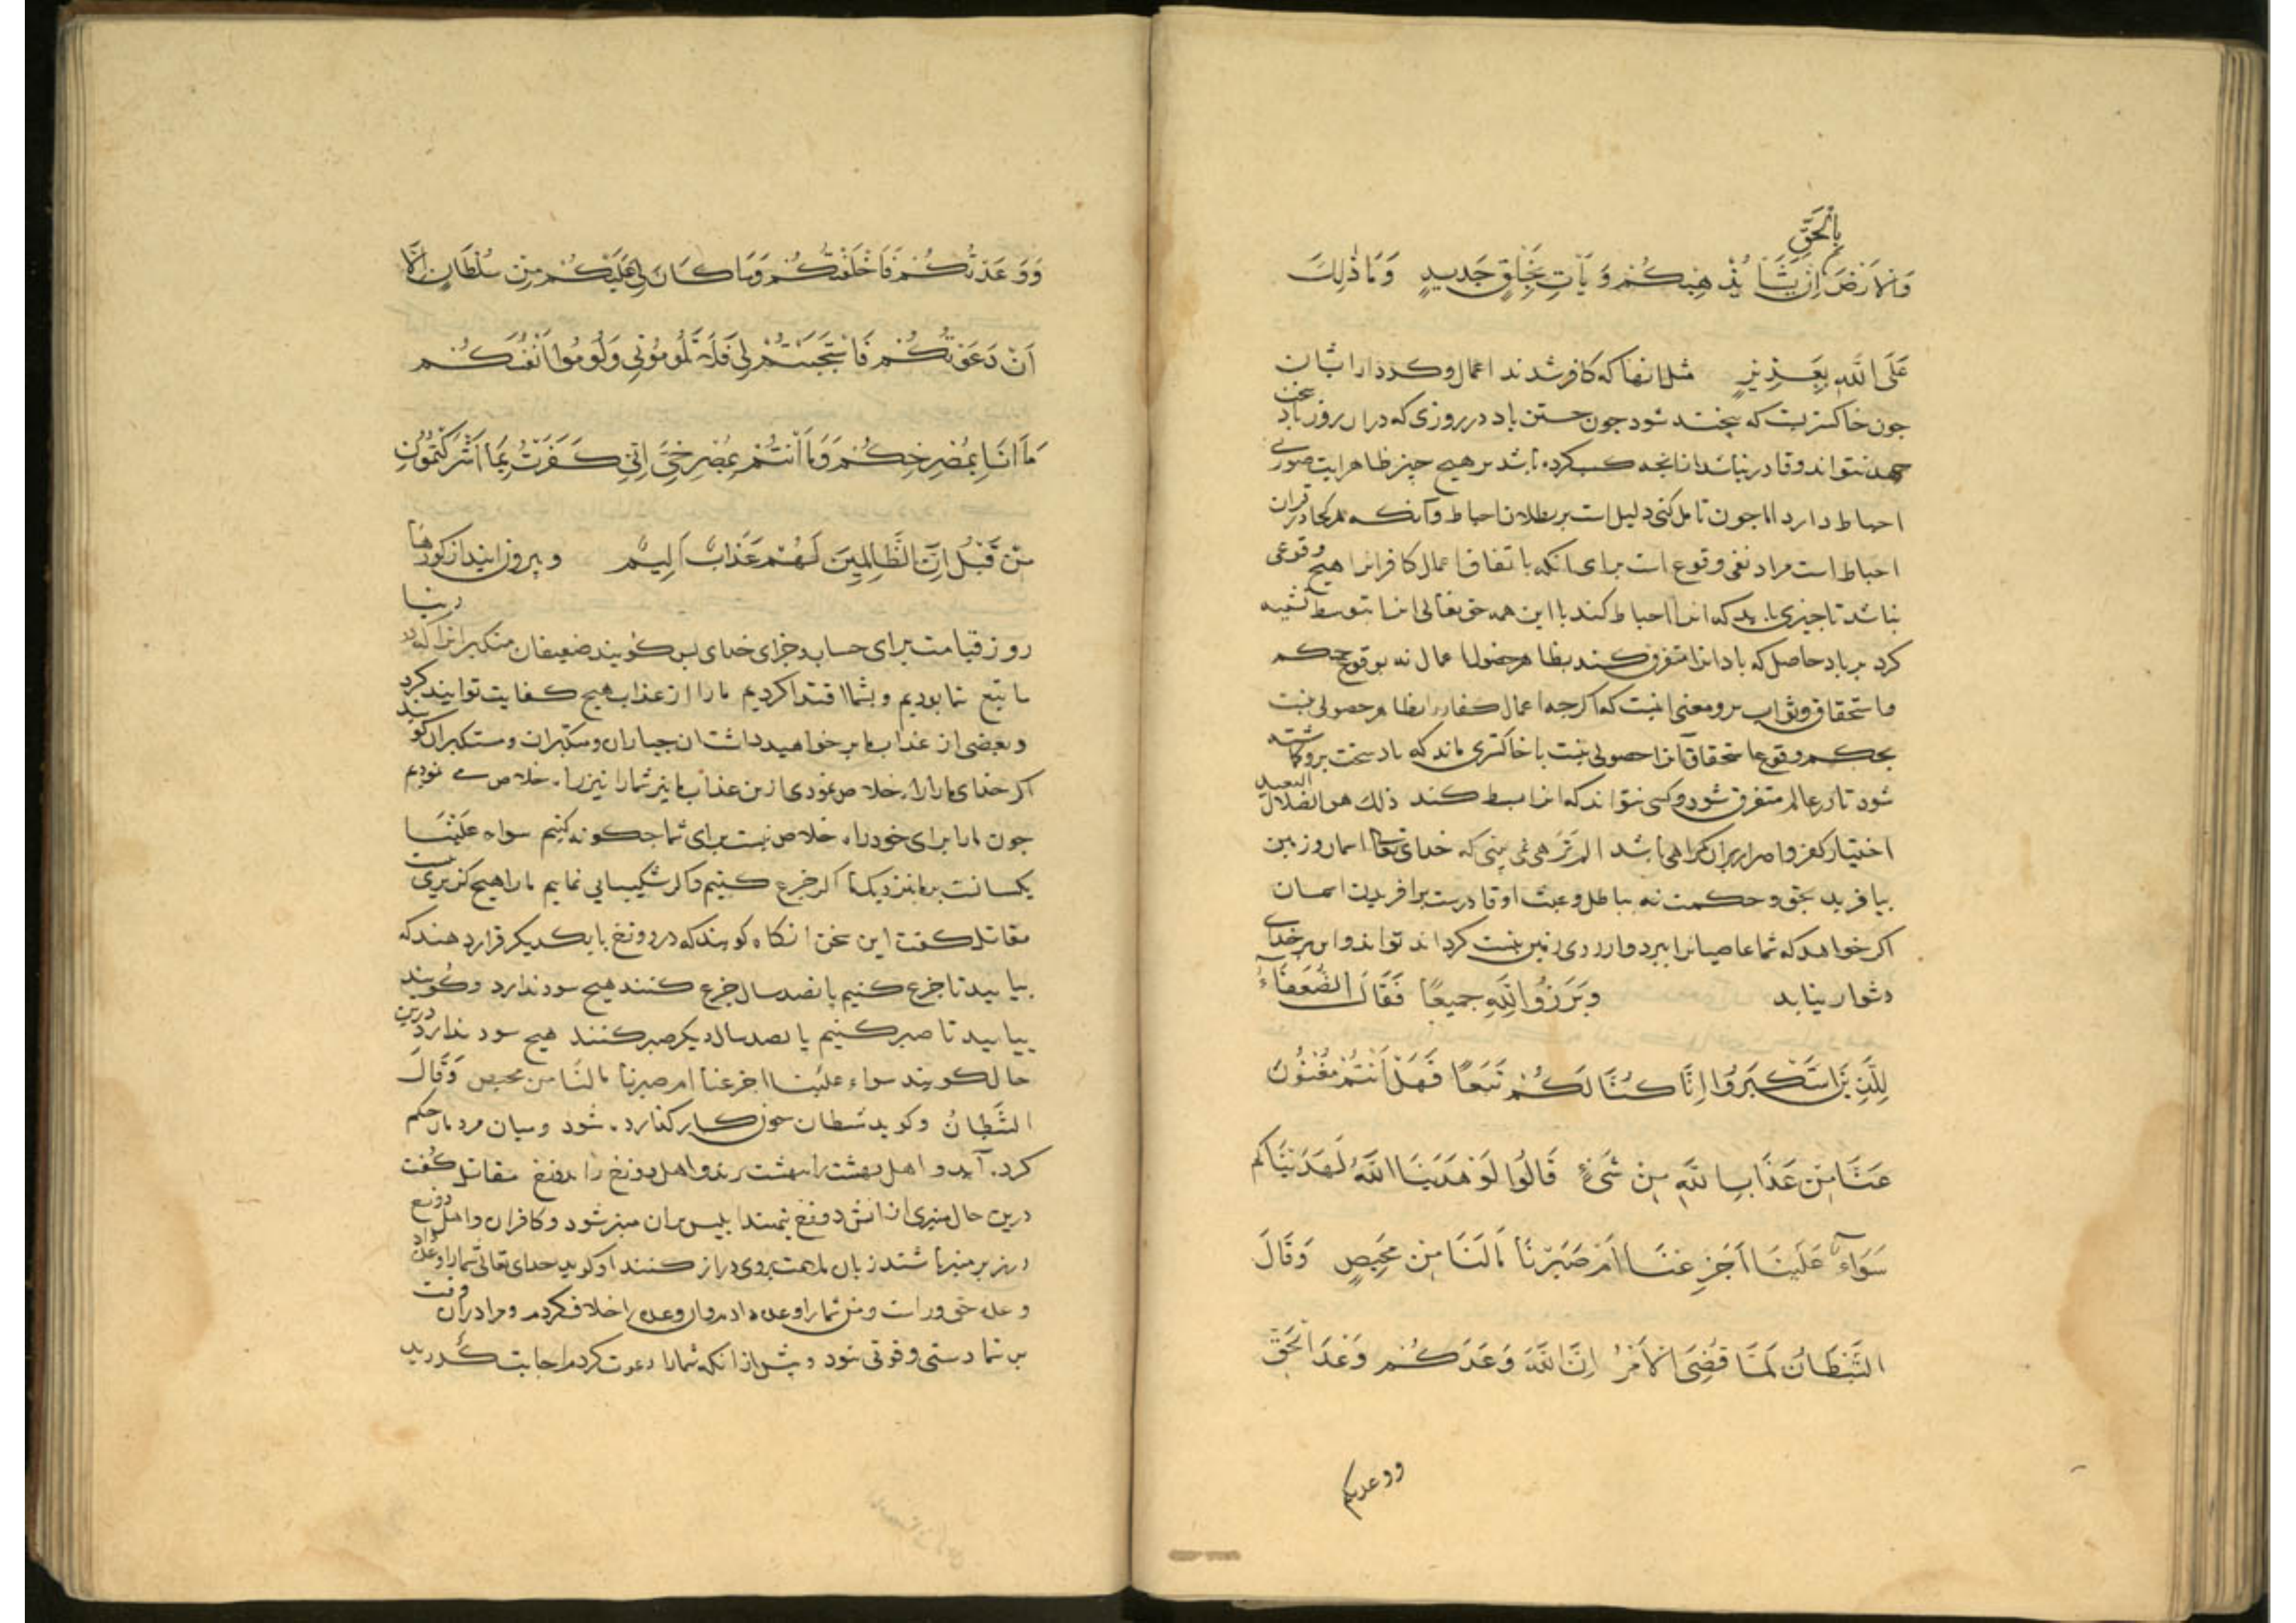 بِالْحَقِّ
وَالْاَرْضَ اِنْ يَشَاْ يُذْهِبْكُمْ وَ يَأْتِ بِخَلْقٍ جَدِيدٍ وَمَا ذٰلِكَ
عَلَى اللَّهِ بِعَزِيزٍ مثل انها که کافر شدند اعمال و کردار ایشان
جون خاکستریست که سخت شود جون جستن باد در روزی که دران روز باد سخت
جهد نتواند و قادر نباشد از انجه کسب کرده باشد بر هیچ چیز ظاهر ایت صورت
احباط دارد اما جون تامل کنی دلیل است بر بطلان احباط و آنکه هر کجا در قران
احباط است مراد نفی وقوع است برای انکه باتفاق اعمال کافرانرا هیچ وقوعی
نباشد تا چیزی باید که انرا احباط کند با این همه حق تعالی انرا تشبیه
کرد بر باد حاصل که باد انرا متفرق کند بظاهر حصول اعمال نه بوقوع حکم
واستحقاق وثواب برو ومعنی انست که اکرجه اعمال کفار را بظاهر حصولی نیست
بحکم وقوع استحقاق آنرا حصولی نیست با خاکستری ماند که باد سخت برو کاشته
شود تا در عالم متفرق شود و کسی نتواند که انرا بسط کند ذلك هو الضلال البعید
اختیار کفر و اصرار بران کمراهی باشد الم تَرَ هی نمی بینی که خدای تعالی اسمان و زمین
بیافرید بحق و حکمت نه بباطل و عبث او قادرست بر افریدن اسمان
اکر خواهد که شما عاصیانرا ببرد و از روی زمین نیست کرداند تواند و این بر خدای
دشوار نیاید وَبَرَزُوا لِلَّهِ جَمِيعًا فَقَالَ الضُّعَفَاءُ
لِلَّذِينَ اسْتَكْبَرُوا اِنَّا كُنَّا لَكُمْ تَبَعًا فَهَلْ اَنْتُمْ مُغْنُونَ
عَنَّا مِنْ عَذَابِ اللَّهِ مِنْ شَىْءٍ قَالُوا لَوْ هَدَيْنَا اللَّهُ لَهَدَيْنَاكُمْ
سَوَآءٌ عَلَيْنَا اَجَزِعْنَا اَمْ صَبَرْنَا مَالَنَا مِنْ مَحِيصٍ وَقَالَ
الشَّيْطَانُ لَمَّا قُضِىَ الْاَمْرُ اِنَّ اللَّهَ وَعَدَكُمْ وَعْدَ الْحَقِّ
ووعدتکم
وَوَعَدْتُكُمْ فَاَخْلَفْتُكُمْ وَمَا كَانَ لِىَ عَلَيْكُمْ مِنْ سُلْطَانٍ اِلَّا
اَنْ دَعَوْتُكُمْ فَاسْتَجَبْتُمْ لِى فَلَا تَلُومُونِى وَلُومُوا اَنْفُسَكُمْ
مَا اَنَا بِمُصْرِخِكُمْ وَمَا اَنْتُمْ بِمُصْرِخِىَّ اِنِّى كَفَرْتُ بِمَا اَشْرَكْتُمُونِ
مِنْ قَبْلُ اِنَّ الظَّالِمِينَ لَهُمْ عَذَابٌ اَلِيمٌ و بیرون ایند از کورها
روز قیامت برای حساب و جزای خدای بس کویند ضعیفان متکبرانرا که در دنیا
ما تبع شما بودیم و بشما اقتدا کردیم ما را از عذاب هیچ کفایت توانید کرد
و بعضی از عذاب ما بر خواهید داشت ان جباران و متکبران و مستکبران کویند
اکر خدای ما را راه خلاص نمودی ازین عذاب ما نیز شما را نیز راه خلاص می نمودیم
جون ما را برای خود راه خلاص نیست برای شما جکونه کنیم سواء عَلَيْنَا
یکسانست بر ما نزدیک ما اکر جزع کنیم و اکر شکیبایی نماییم ما را هیچ کزیری نیست
مقاتل کفت این سخن انکاه کویند که در دوزخ با یکدیکر قرار دهند که
بیایید تا جزع کنیم پانصد سال جزع کنند هیچ سود ندارد و کویند
بیایید تا صبر کنیم پانصد سال دیکر صبر کنند هیچ سود ندارد درین
حال کویند سواء علينا اجزعنا ام صبرنا مالنا من محیص وَقَالَ
الشَّيْطَانُ و کوید شیطان جون کار کذارده شود و میان مردمان حکم
کرده آید و اهل بهشت را ببهشت برند و اهل دوزخ را بدوزخ مقاتل کفت
درین حال منبری از اتش دوزخ بنهند ابلیس بران منبر شود و کافران و اهل دوزخ
در زیر منبر باشند زبان ملامت بروی دراز کنند او کوید خدای تعالی شما را وعده داد
وعده حق و راست و من شما را وعده دادم و ان وعده را خلاف کردم و مرا دران وقت
بر شما دستی و قوتی نبود و بیش از انکه شما را دعوت کردم اجابت کردید